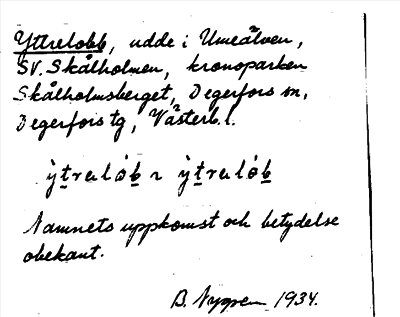 Yttrelobb, udde i Umeälven,
SV. Skålholmen, kronoparken
Skålholmsberget, Degerfors sn,
Degerfors tg, Västerb. l.
ỳt̲rəlób̲ ~ ỳt̲rəlób̲
Namnets uppkomst och betydelse
obekant.
B. Nygren 1934.